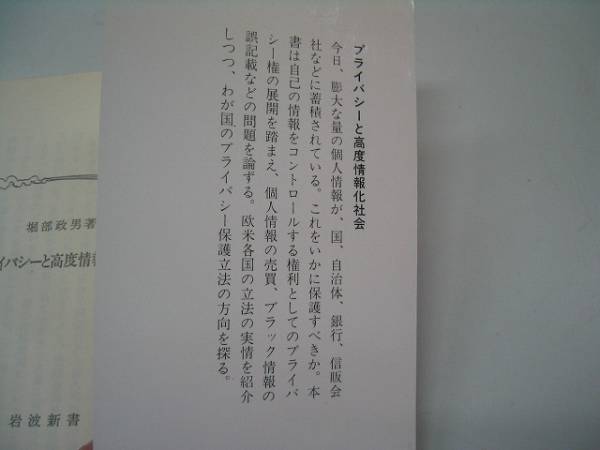 プライバシーと高度情報化社会
今日、膨大な量の個人情報が、国、自治体、銀行、信販会
社などに蓄積されている。これをいかに保護すべきか。本
書は自己の情報をコントロールする権利としてのプライバ
シー権の展開を踏まえ、個人情報の売買、ブラック情報の
誤記載などの問題を論ずる。欧米各国の立法の実情を紹介
しつつ、わが国のプライバシー保護立法の方向を探る。
堀部政男著
イバシーと高度情報
岩波新書